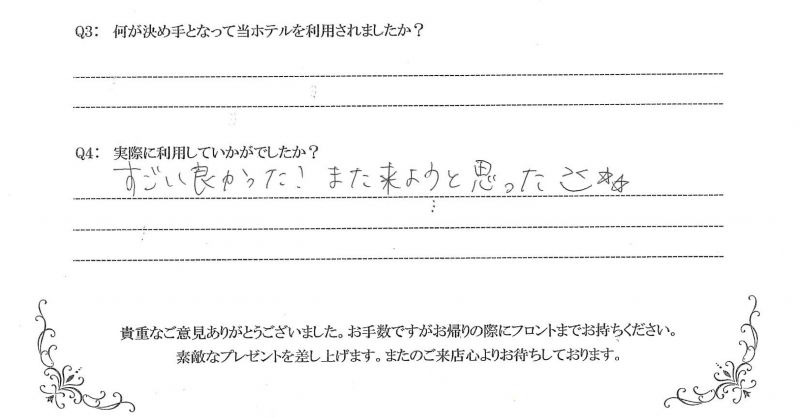 Q3: 何が決め手となって当ホテルを利用されましたか？
Q4: 実際に利用していかがでしたか？
すごい良かった! また来ようと思った
貴重なご意見ありがとうございました。お手数ですがお帰りの際にフロントまでお持ちください。
素敵なプレゼントを差し上げます。またのご来店心よりお待ちしております。